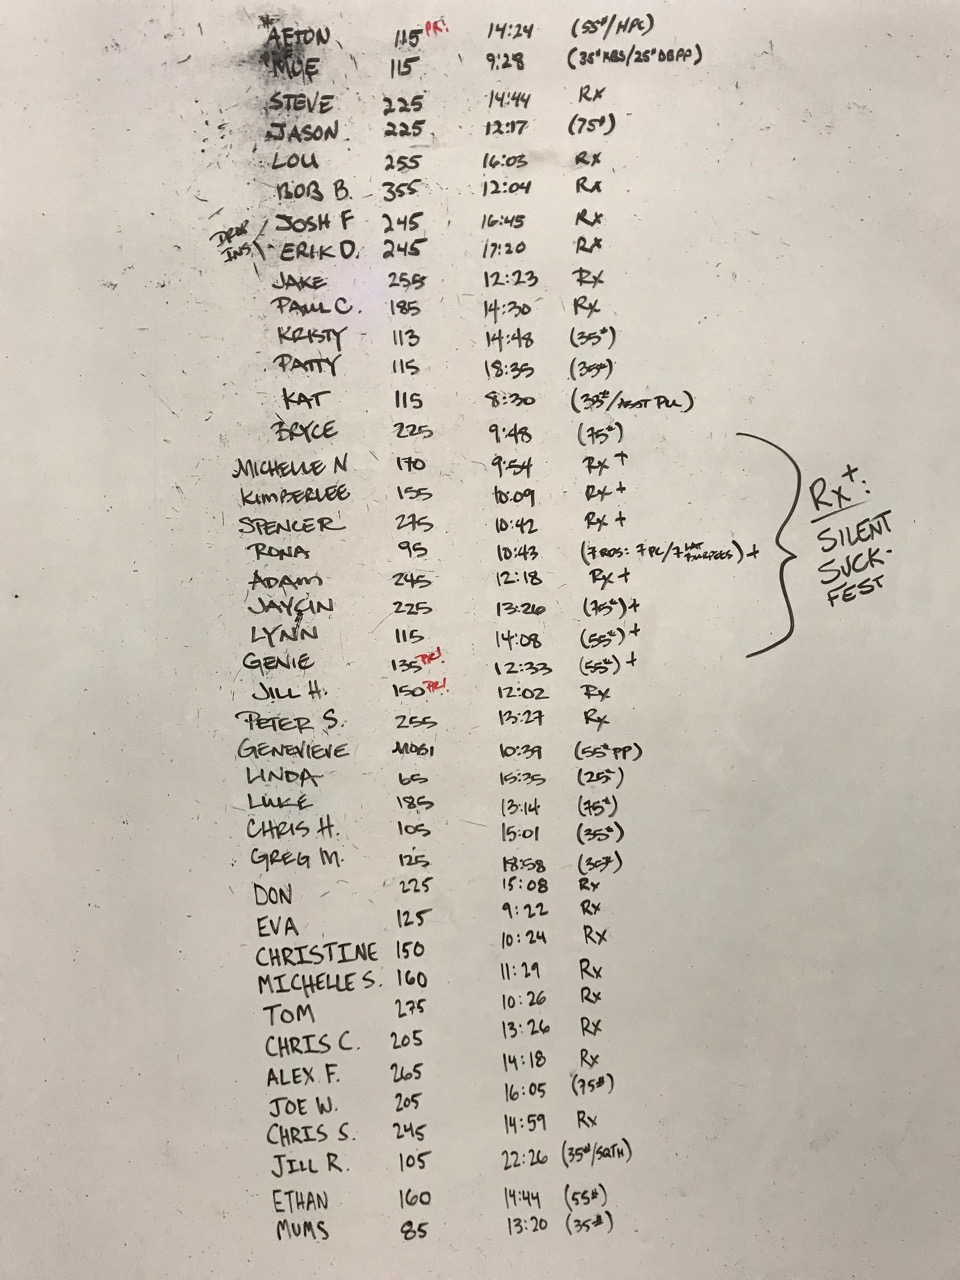 AFTON 115 PR! 14:24 (55#/HPC)
MOE 115 9:28 (35#KBS/25#DBPP)
STEVE 225 14:44 Rx
JASON 225 12:17 (75#)
LOU 255 16:03 Rx
BOB B. 355 12:04 Rx
DROP INS
JOSH F 245 16:45 Rx
ERIK D. 245 17:20 Rx
JAKE 255 12:23 Rx
PAUL C. 185 14:30 Rx
KRISTY 113 14:48 (35#)
PATTY 115 18:35 (35#)
KAT 115 8:30 (35#/ASST PU)
BRYCE 225 9:48 (75#)
MICHELLE N 170 9:54 Rx+
KIMBERLEE 155 10:09 Rx+
SPENCER 275 10:42 Rx+
RONA 95 10:43 (7 RDS: 7 PC/7 LAT BURPEES)+
ADAM 245 12:18 Rx+
JAYCIN 225 13:26 (75#)+
LYNN 115 14:08 (55#)+
GENIE 135 PR! 12:33 (55#)+
Rx+:
SILENT
SUCK-
FEST
JILL H. 150 PR! 12:02 Rx
PETER S. 255 13:27 Rx
GENEVIEVE MOBI 10:39 (55#PP)
LINDA 65 15:35 (25#)
LUKE 185 13:14 (75#)
CHRIS H. 105 15:01 (35#)
GREG M. 125 18:58 (35#)
DON 225 15:08 Rx
EVA 125 9:22 Rx
CHRISTINE 150 10:24 Rx
MICHELLE S. 160 11:29 Rx
TOM 275 10:26 Rx
CHRIS C. 205 13:26 Rx
ALEX F. 265 14:18 Rx
JOE W. 205 16:05 (75#)
CHRIS S. 245 14:59 Rx
JILL R. 105 22:26 (35#/SQTH)
ETHAN 160 14:44 (55#)
MUMS 85 13:20 (35#)